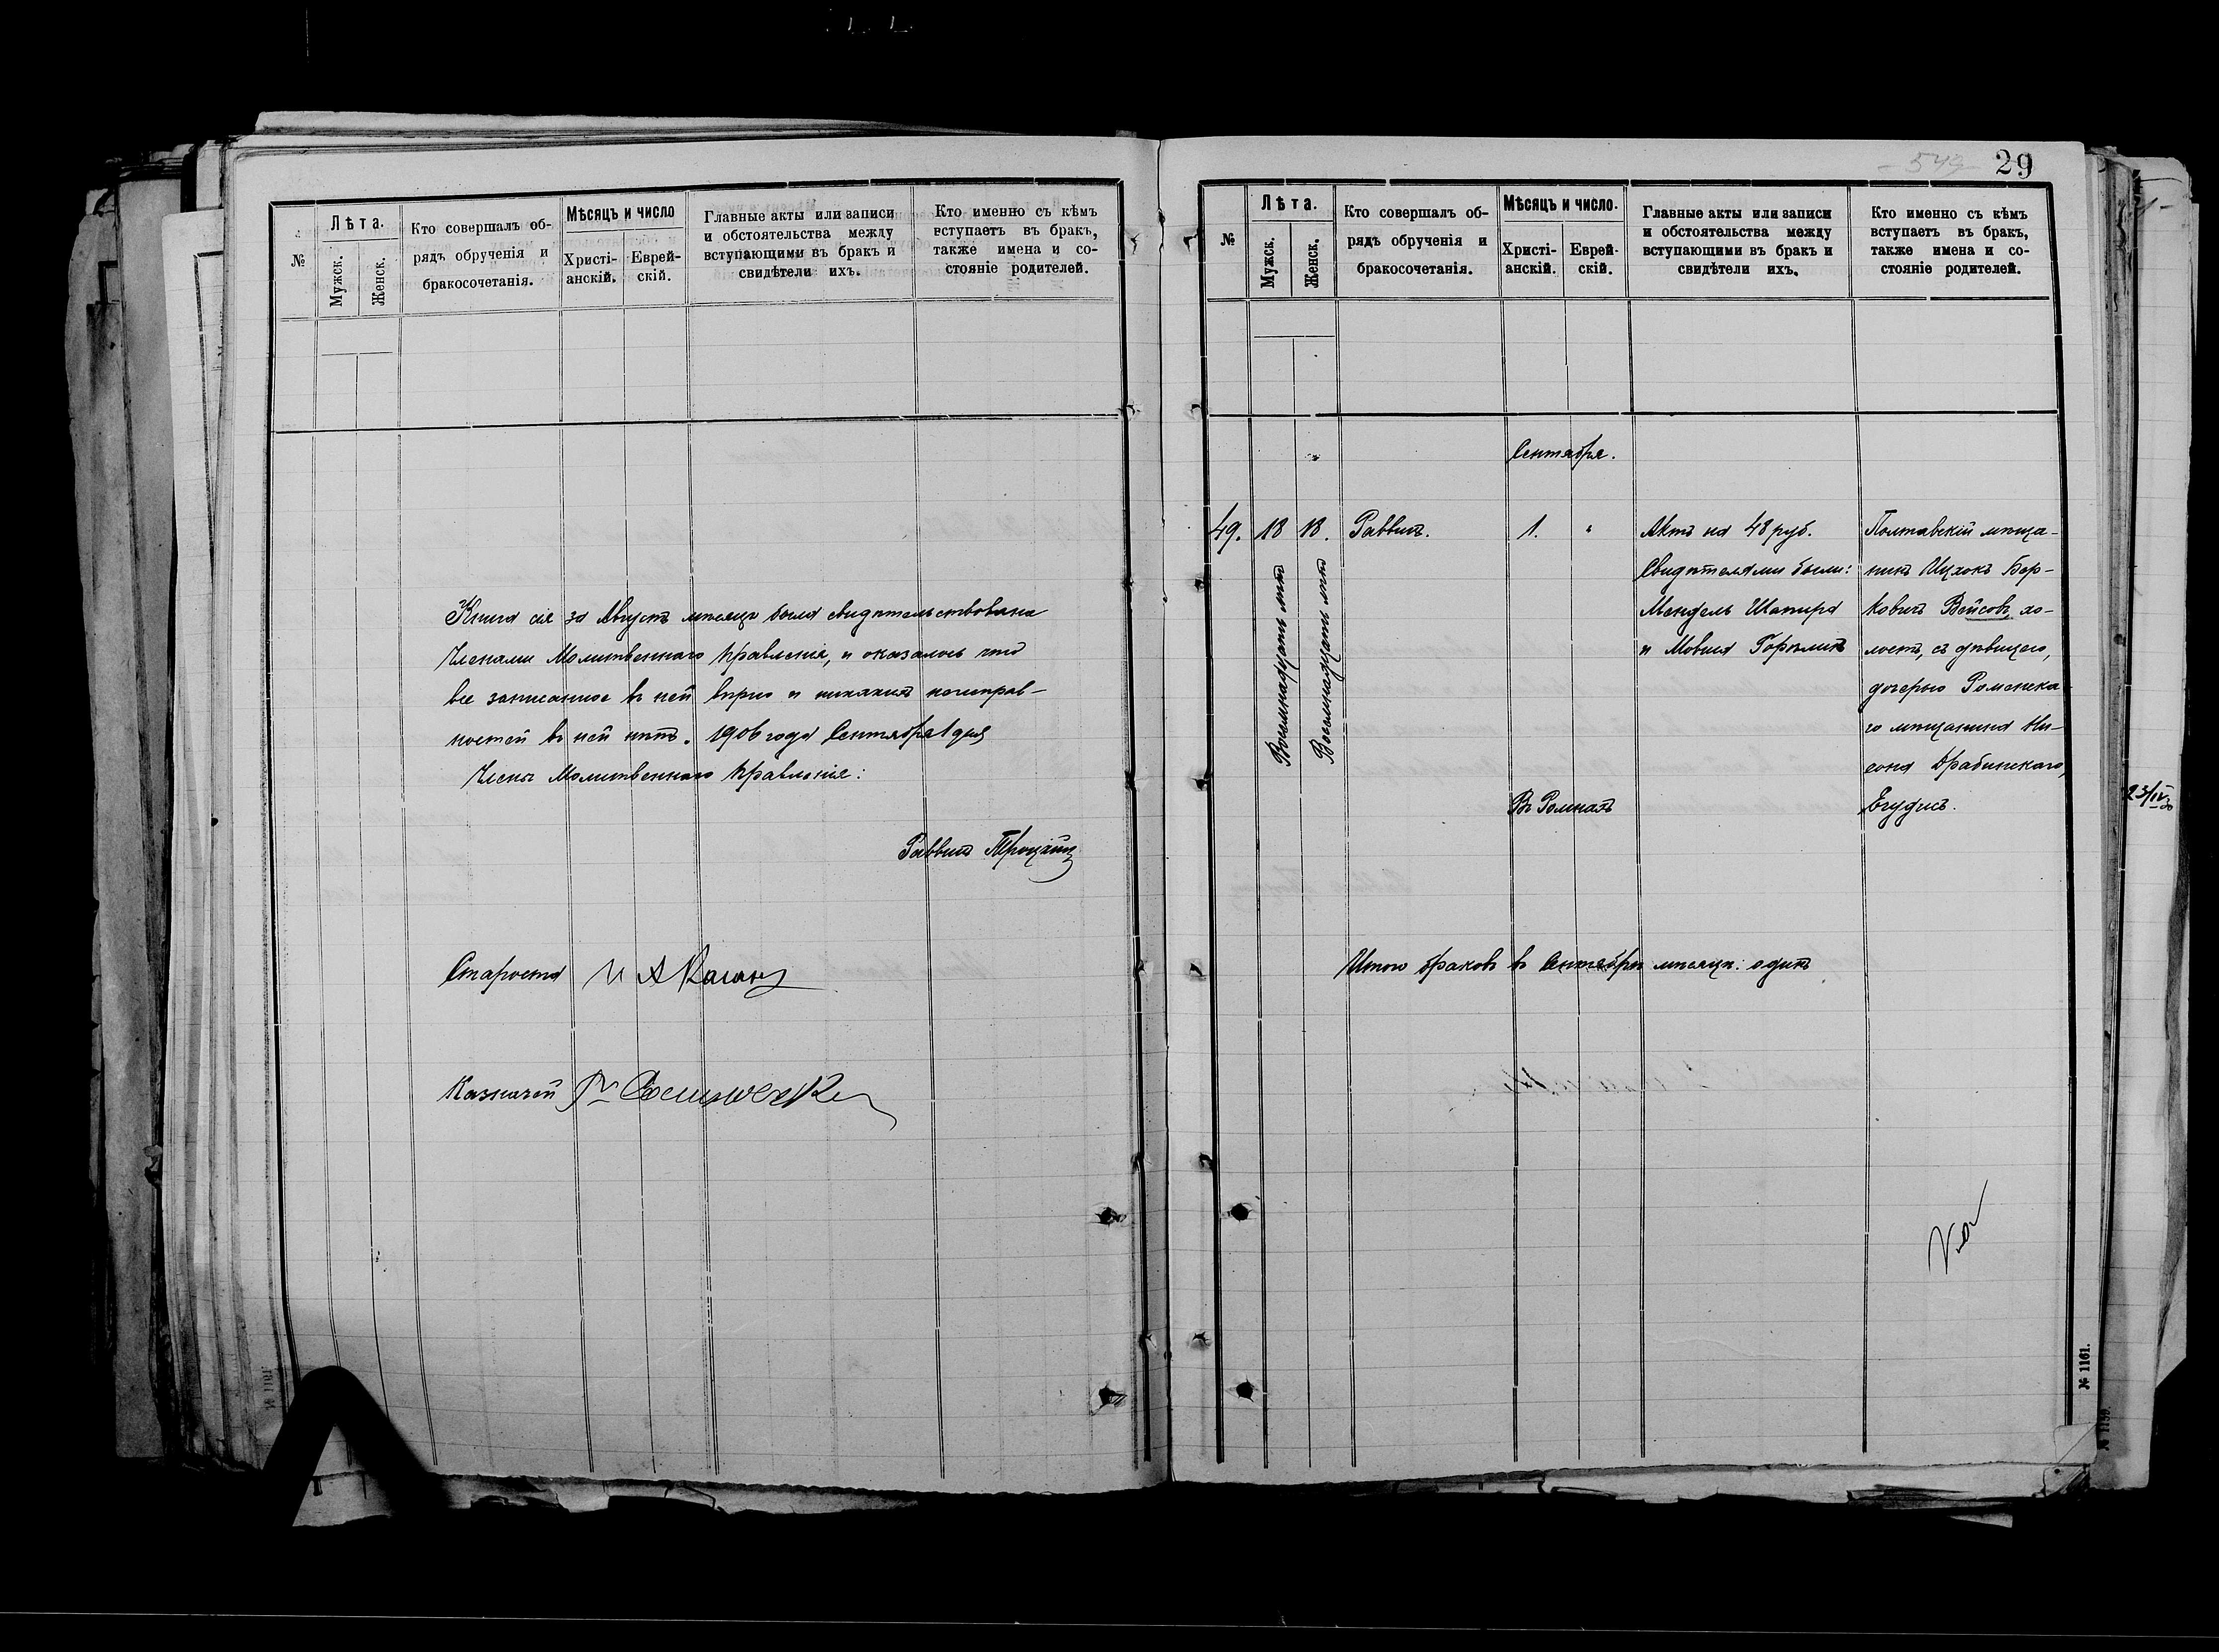 №
Лѣта.
Мужск.
Женск.
Кто совершалъ об-
рядъ обрученія и
бракосочетанія.
Мѣсяцъ и число
Христі-
анскій.
Еврей-
скій.
Главные акты или записи
и обстоятельства между
вступающими въ бракъ и
свидѣтели ихъ.
Кто именно съ кѣмъ
вступаетъ въ бракъ,
также имена и со-
стояніе родителей.
Книга сія за Августъ мѣсяцъ была свидѣтельствована
Членами Молитвеннаго Правленія, и оказалось что
все записанное въ ней вѣрно и никакихъ неисправ-
ностей въ ней нѣтъ. 1906 года Сентября 1 дня
Члены Молитвеннаго Правленія:
Раввинъ
Староста И А Каганъ
Казначей
549
29
№
Лѣта.
Мужск.
Женск.
Кто совершалъ об-
рядъ обрученія и
бракосочетанія.
Мѣсяцъ и число.
Христі-
анскій.
Еврей-
скій.
Главные акты или записи
и обстоятельства между
вступающими въ бракъ и
свидѣтели ихъ.
Кто именно съ кѣмъ
вступаетъ въ бракъ,
также имена и со-
стояніе родителей.
Сентября.
49.
18
Восемнадцать лѣтъ
18.
Восемнадцать лѣтъ
Раввинъ.
1.
"
Въ Ромнахъ
Актъ на 48 руб.
Свидѣтелями были:
Мендель Шапиро
и Мовша Горѣликъ
Полтавскій мѣща-
нинъ Ицхокъ Бер-
ковичъ Вейсовъ, хо-
лостъ, съ дѣвицею,
дочерью Роменска-
го мѣщанина Ни-
сона Драбинскаго,
Егудисъ.
Итого браковъ въ Сентябрѣ мѣсяцѣ: одинъ
23/IV
№ 1161.
№ 1159.